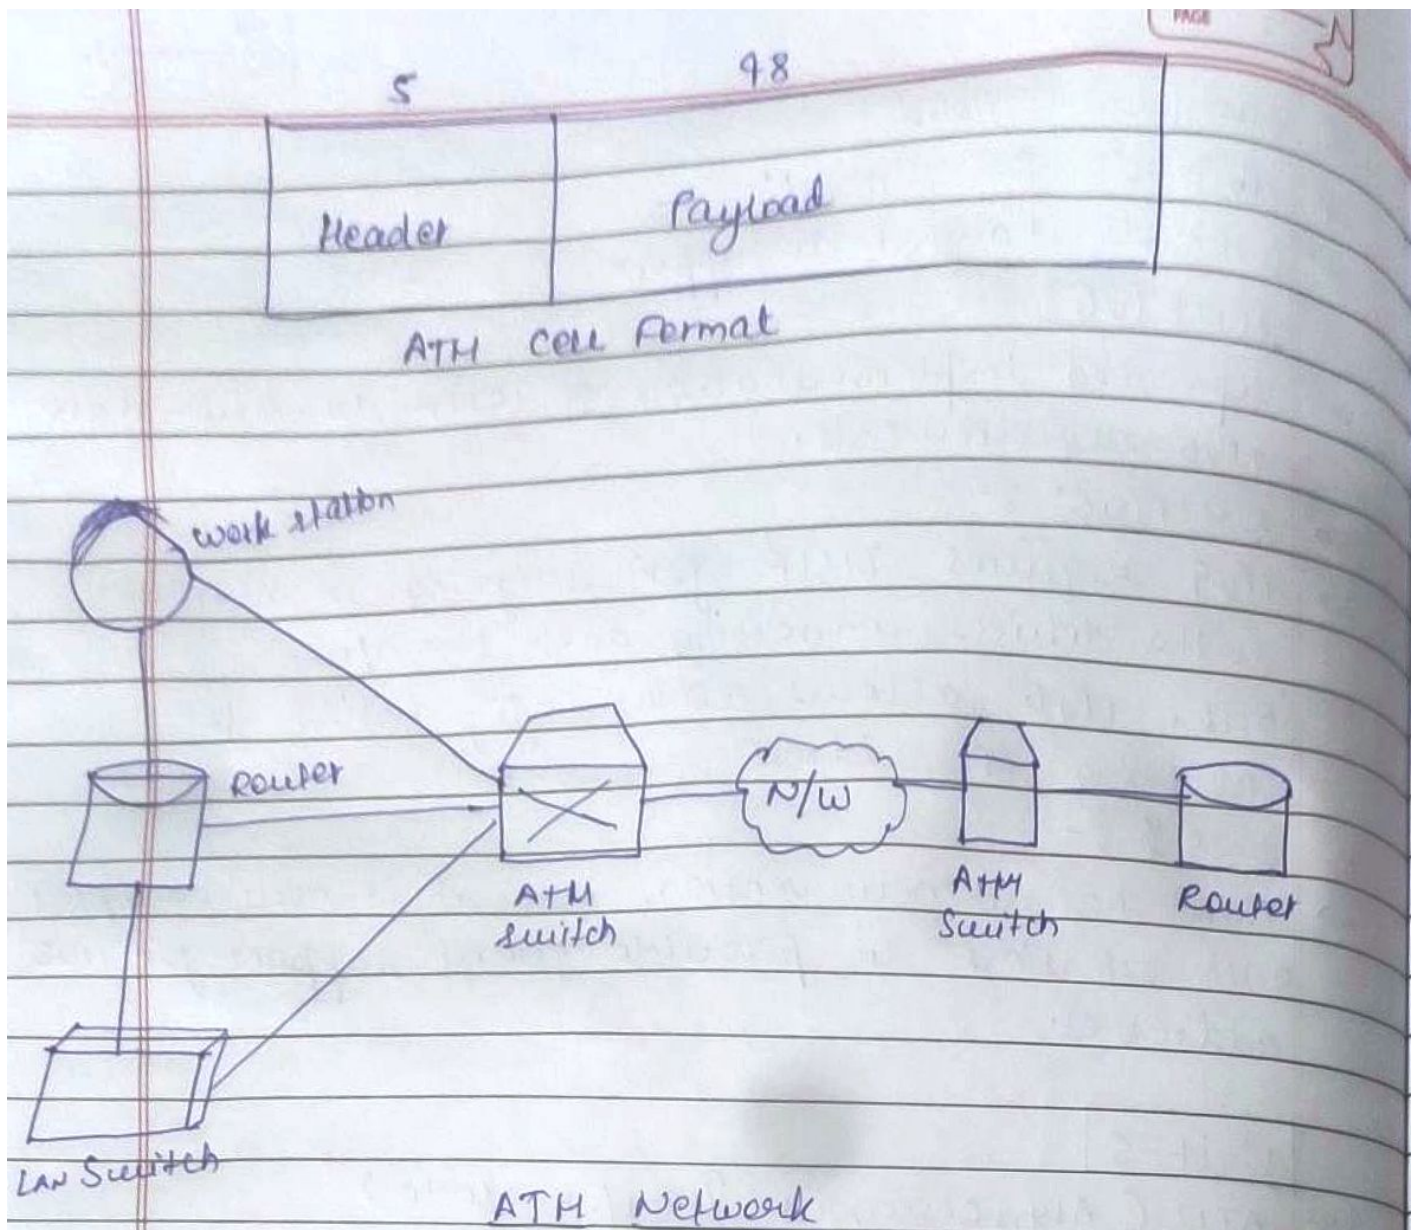 PAGE
5 48
Header Payload
ATM Cell Format
Work station
Router
N/W
ATM
Switch
ATM
Switch
Router
LAN Switch
ATM Network